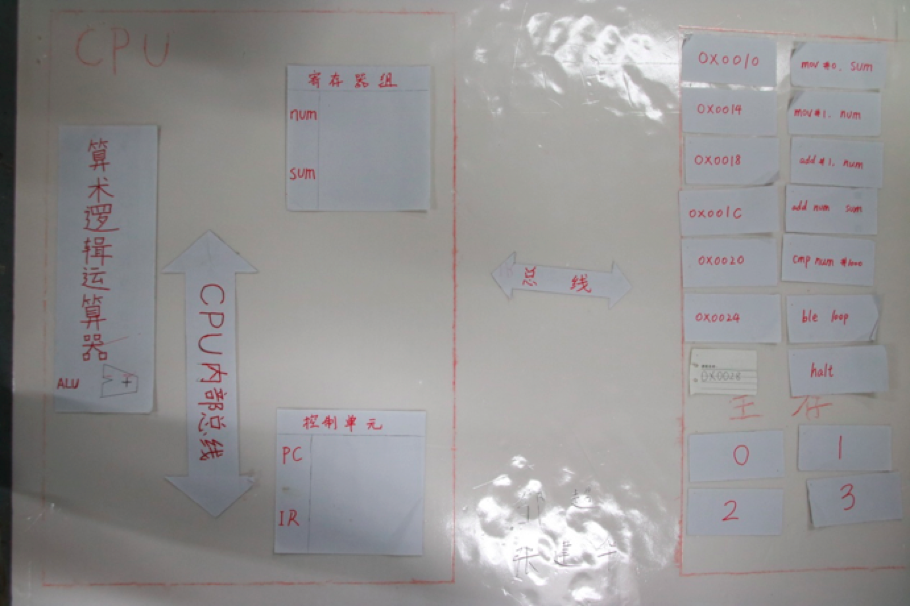 CPU
寄存器组
num
sum
算术逻辑运算器
ALU
- +
CPU内部总线
控制单元
PC
IR
总线
0X0010 mov #0, sum
0X0014 mov #1, num
0X0018 add #1, num
0X001C add num sum
0X0020 cmp num #1000
0X0024 ble loop
0X0028 halt
主存
0 1
2 3